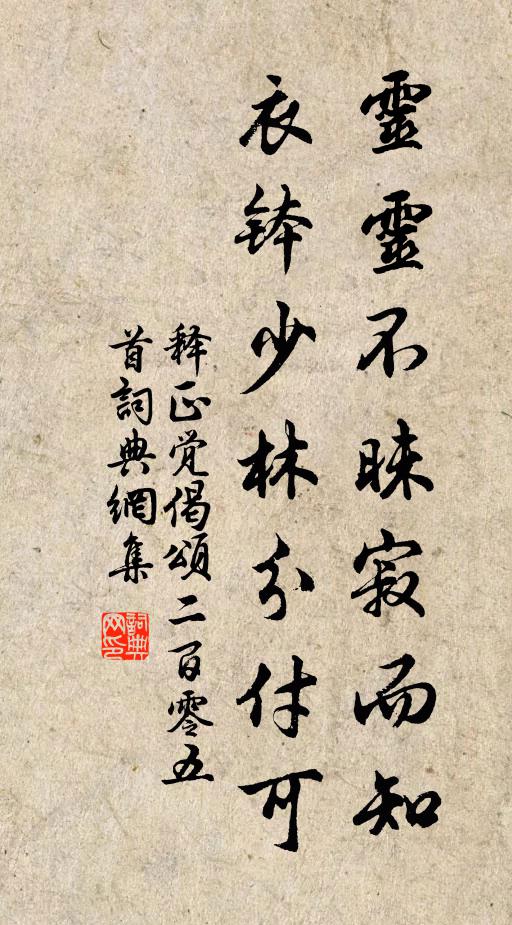 靈靈不昧寂而知
衣鉢少林分付可
释正覚偈頌二百零五
首詞典網集
詞典
网印